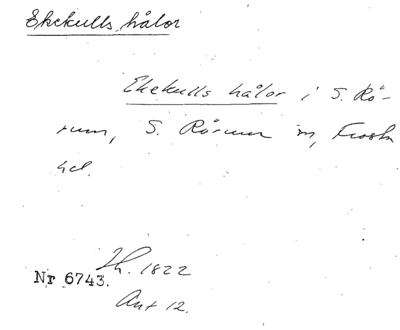 Ekekulls hålor
Ekekulls hålor i S. Rö-
rum, S. Rörum sn, Frosta
hd.
Lh. 1822
Nr 6743.
Ant 12.